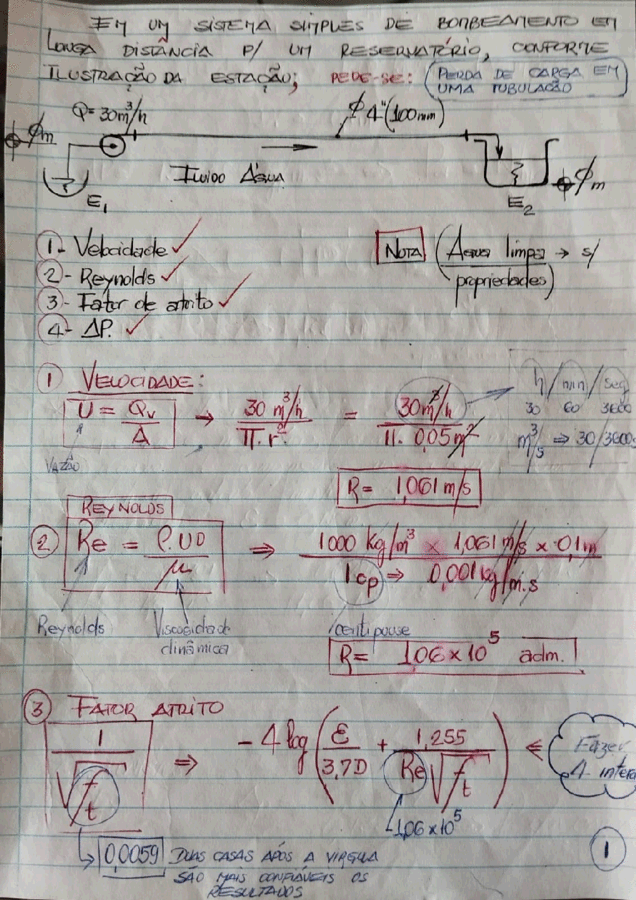 EM UM SISTEMA SIMPLES DE BOMBEAMENTO EM
LONGA DISTÂNCIA P/ UM RESERVATÓRIO, CONFORME
ILUSTRAÇÃO DA ESTAÇÃO; PEDE-SE: (PERDA DE CARGA EM
UMA TUBULAÇÃO)
Q= 30m³/h
Ø 4" (100mm)
Øm
Fluido Água
E1
E2
Øm
1- Velocidade ✓
2- Reynolds ✓
3- Fator de atrito ✓
4- ΔP. ✓
NOTA (Água limpa → s/
propriedades)
1 VELOCIDADE:
U = Qv/A → 30 m³/h / π.r² = 30m³/h / π. 0,05m²
h / min / seg
30 60 3600
m³/s ⇒ 30/3600s
VAZÃO
R= 1,061 m/s
REYNOLDS
2 Re = ρ.UD/μ ⇒ 1000 kg/m³ × 1,061 m/s × 0,1m / 1cp ⇒ 0,001 kg/m.s
Reynolds
Viscosidade
dinâmica
centipouse
R= 1,06 × 10⁵ adm.
3 FATOR ATRITO
1/√ft ⇒ -4 log (ε/3,7D + 1,255/Re√ft) ⇐ Fazer
4
1,06 × 10⁵
0,0059 DUAS CASAS APÓS A VIRGULA
SÃO MAIS CONFIÁVEIS OS
RESULTADOS
1